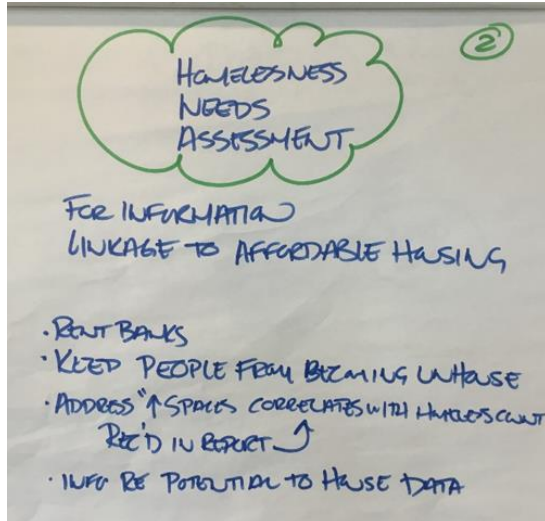 2
HOMELESSNESS
NEEDS
ASSESSMENT
FOR INFORMATION
LINKAGE TO AFFORDABLE HOUSING
· RENT BANKS
· KEEP PEOPLE FROM BECOMING UNHOUSE
· ADDRESS "↑ SPACES CORRELATES WITH HOMELESS COUNT
REC'D IN REPORT
· INFO RE POTENTIAL TO HOUSE DATA